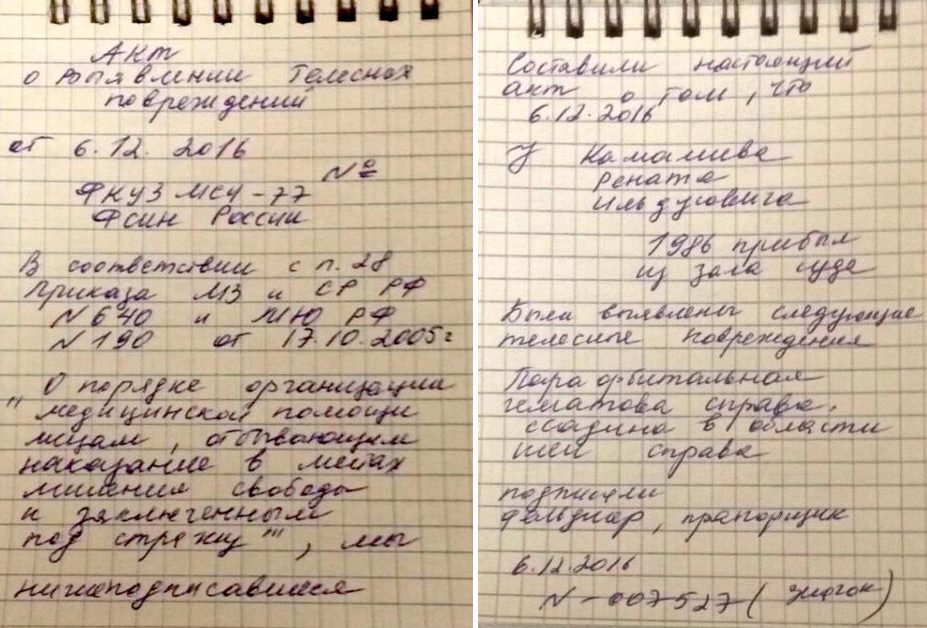 Акт
о выявлении телесных
повреждений
от 6.12.2016
№
ФКУЗ МСЧ-77
Фсин России
В соответствии с п. 28
Приказа МЗ и СР РФ
N 640 и МЮ РФ
N 190 от 17.10.2005г
"О порядке организации
медицинской помощи
лицам, отбывающим
наказание в местах
лишения свободы
и заключенным
под стражу", мы
нижеподписавшиеся
Составили настоящий
акт о том, что
6.12.2016
У Камалиева
Рената
Ильдусовича
1986 прибыл
из зала суда
Были выявлены следующие
телесные повреждения
Пара орбитальная
гематова справа.
ссадина в области
шеи справа
подписали
фельдшер, прапорщик
6.12.2016
N-007527 (жетон)